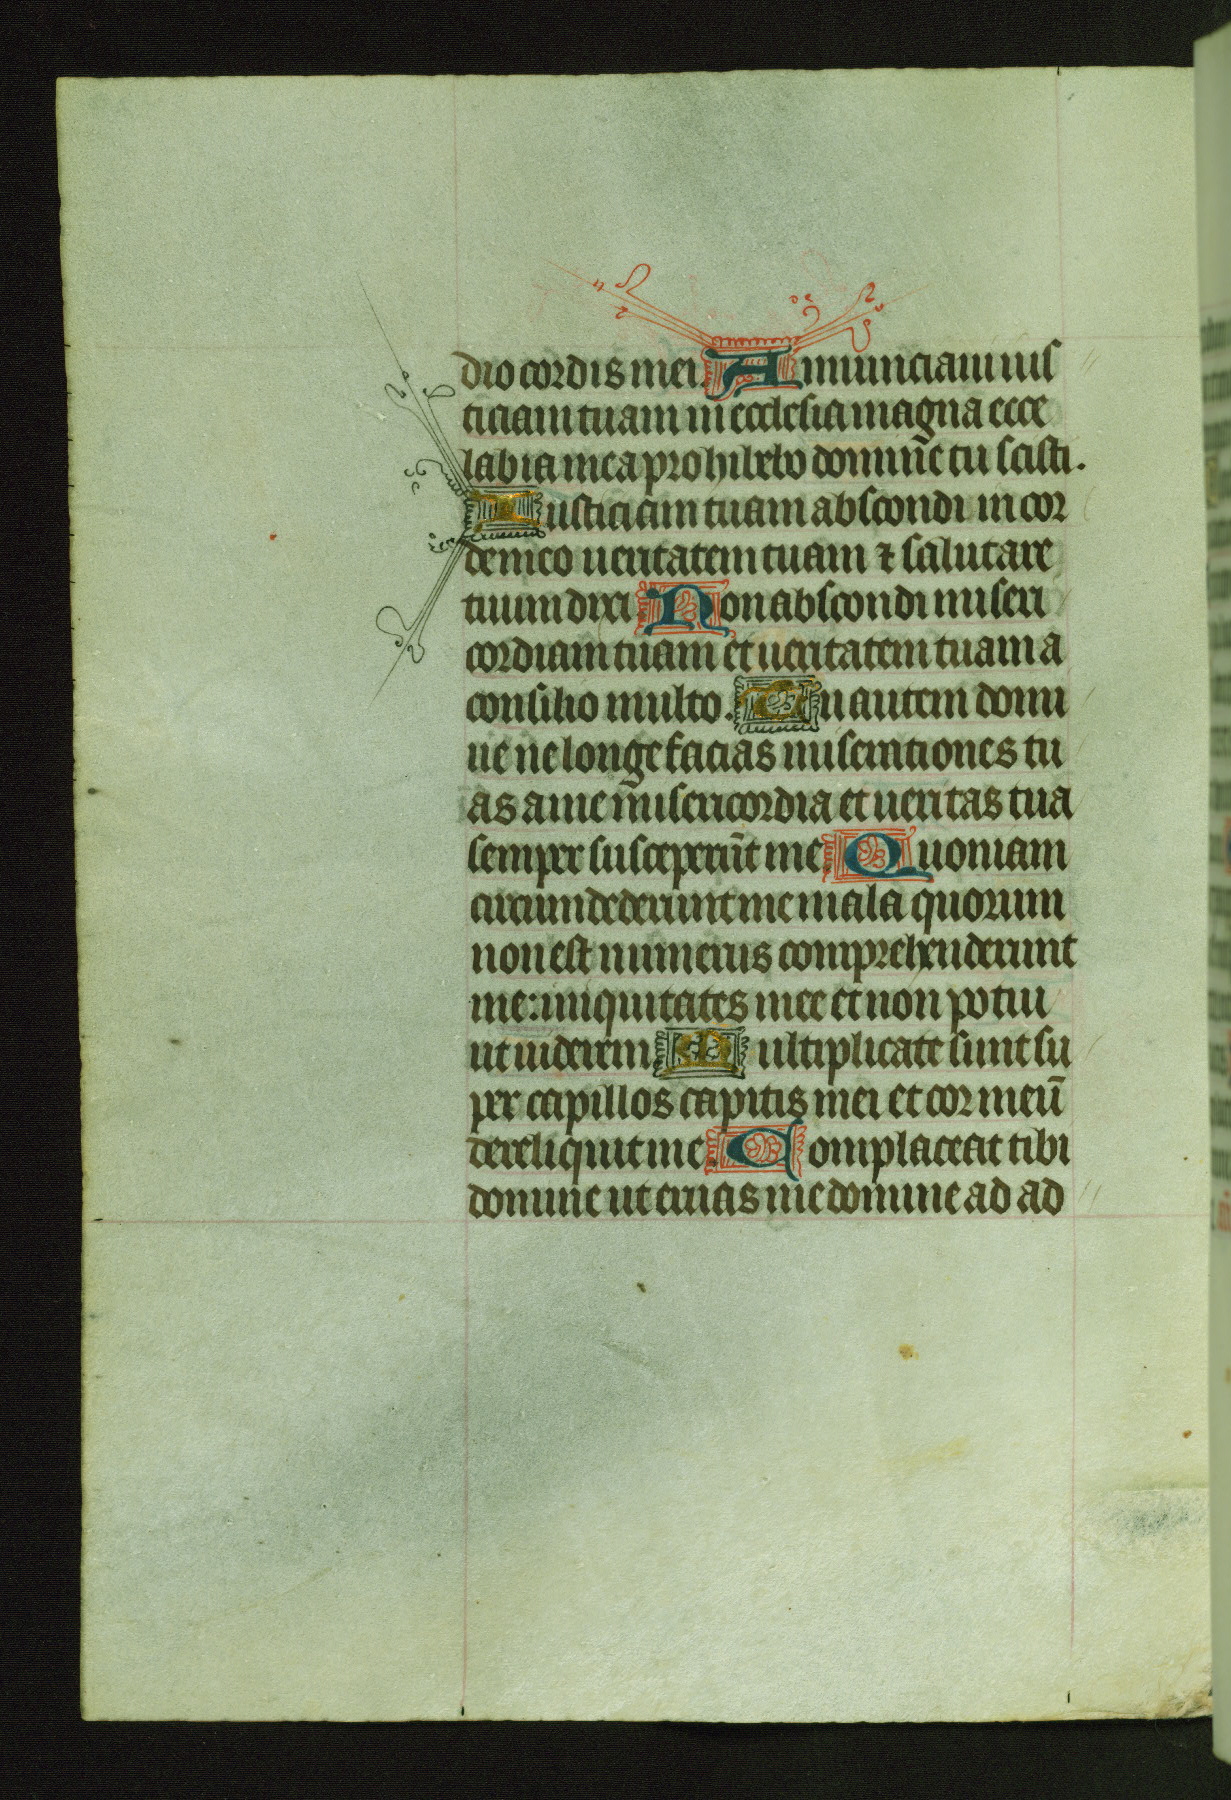 dio cordis mei. Annunciaui ius
ticiam tuam in ecclesia magna ecce
labia mea prohibebo domine tu scisti.
Iusticiam tuam abscondi in cor
de meo ueritatem tuam ⁊ salutare
tuum dixi Non abscondi miseri
cordiam tuam et ueritatem tuam a
consilio multo. Tu autem domi
ne ne longe facias miserationes tu
as a me misericordia et ueritas tua
semper susceperūt me. Quoniam
circumdederunt me mala quorum
non est numerus comprehenderunt
me: iniquitates mee et non potui
ut uiderem Multiplicate sunt su
per capillos capitis mei et cor meū
dereliquit me. Complaceat tibi
domine ut eruas me domine ad ad